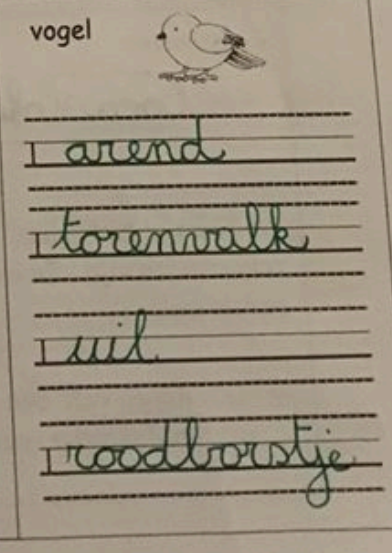 vogel
arend
torenvalk
uil
roodborstje